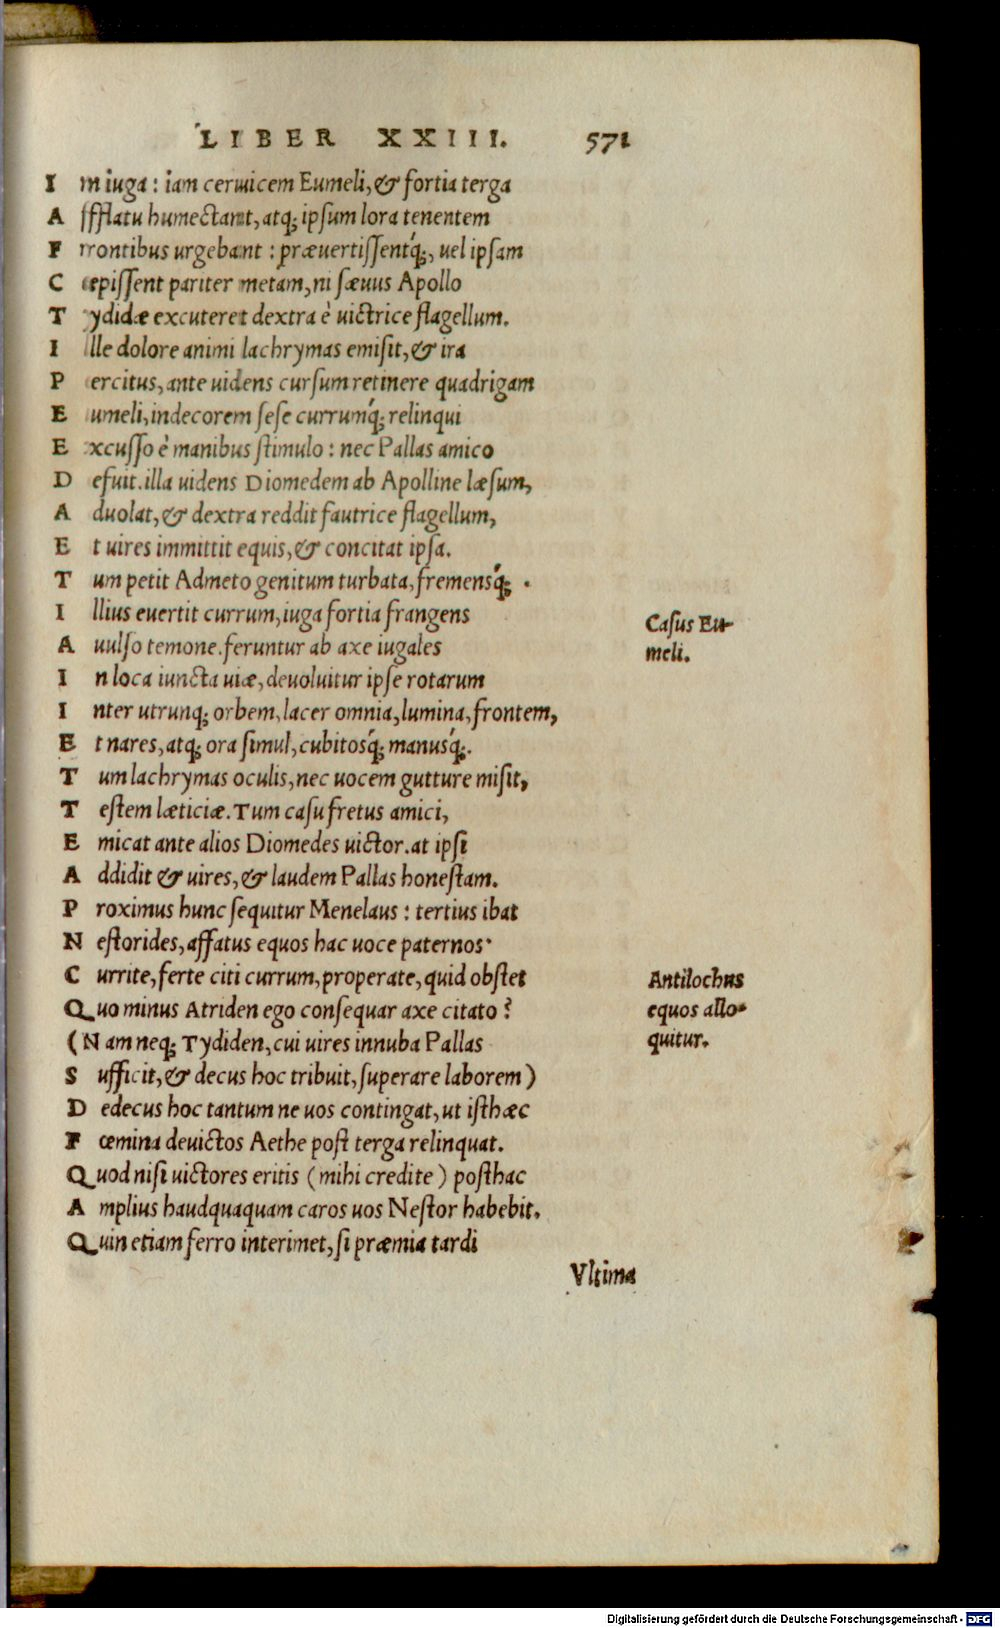 LIBER XXIII. 571
I m iuga: iam ceruicem Eumeli, & fortia terga
A fflatu humectant, atq; ipsum lora tenentem
F rontibus urgebant: præuertissentq́;, uel ipsam
C epissent pariter metam, ni sæuus Apollo
T ydidæ excuteret dextra è uictrice flagellum.
I lle dolore animi lachrymas emisit, & ira
P ercitus, ante uidens cursum retinere quadrigam
E umeli, indecorem sese currumq́; relinqui
E xcusso è manibus stimulo: nec Pallas amico
D efuit. illa uidens Diomedem ab Apolline læsum,
A duolat, & dextra reddit fautrice flagellum,
E t uires immittit equis, & concitat ipsa.
T um petit Admeto genitum turbata, fremensq́;.
I llius euertit currum, iuga fortia frangens
A uulso temone. feruntur ab axe iugales
I n loca iuncta uiæ, deuoluitur ipse rotarum
I nter utrunq; orbem, lacer omnia, lumina, frontem,
E t nares, atq; ora simul, cubitosq́; manusq́;.
T um lachrymas oculis, nec uocem gutture misit,
T estem læticiæ. Tum casu fretus amici,
E micat ante alios Diomedes uictor. at ipsi
A ddidit & uires, & laudem Pallas honestam.
P roximus hunc sequitur Menelaus: tertius ibat
N estorides, affatus equos hac uoce paternos.
C urrite, ferte citi currum, properate, quid obstet
Q uo minus Atriden ego consequar axe citato?
(N am neq; Tydiden, cui uires innuba Pallas
S ufficit, & decus hoc tribuit, superare laborem)
D edecus hoc tantum ne uos contingat, ut isthæc
F œmina deuictos Aethe post terga relinquat.
Q uod nisi uictores eritis (mihi credite) posthac
A mplius haudquaquam caros uos Nestor habebit.
Q uin etiam ferro interimet, si præmia tardi
Vltima
Casus Eu-
meli.
Antilochus
equos allo-
quitur.
Digitalisierung gefördert durch die Deutsche Forschungsgemeinschaft - DFG